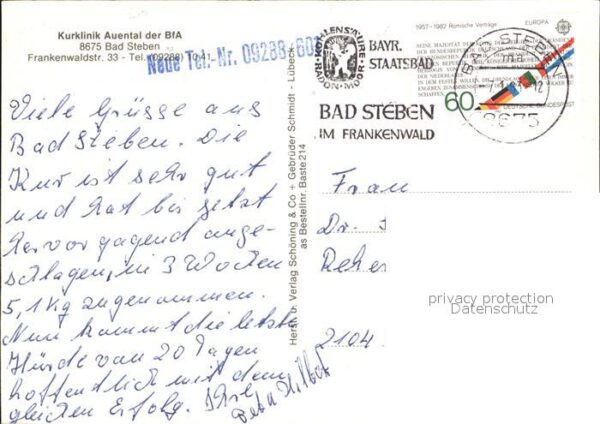 Kurklinik Auental der BfA
8675 Bad Steben
Frankenwaldstr. 33 - Tel. (09288) 1041
Neue Tel.-Nr. 09288-601
Viele Grüsse aus
Bad Steben. Die
Kur ist sehr gut
und hat bis jetzt
hervorragend ange-
schlagen, in 3 Wochen
5,1 kg angenommen.
Nun kommt die letzte
Hürde von 20 Tagen
hoffentlich mit dem
gleichen Erfolg. Ihre
Herst. u. Verlag Schöning & Co + Gebrüder Schmidt - Lübeck
as Bestellnr. Baste 214
KOHLENSÄURE
RADON MOOR
BAYR.
STAATSBAD
BAD STEBEN
IM FRANKENWALD
1957-1982 Römische Verträge
EUROPA
60
DEUTSCHE BUNDESPOST
BAD STEBEN
8675
Frau
Dr.
2104
privacy protection
Datenschutz